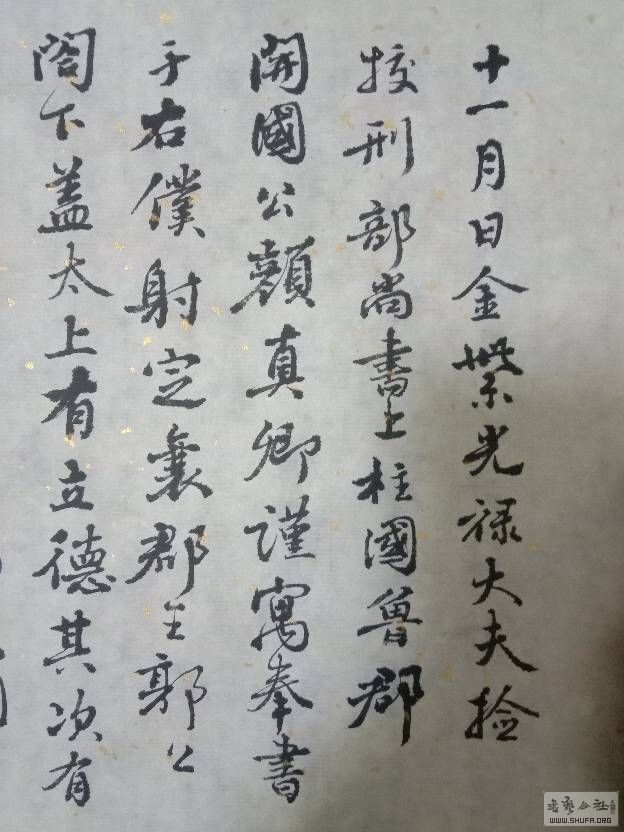 十一月日金紫光禄大夫捡
挍刑部尚書上柱國魯郡
開國公顔真卿謹寓奉書
于右僕射定襄郡王郭公
閤下盖太上有立德其次有
WWW.SHUFA.ORG